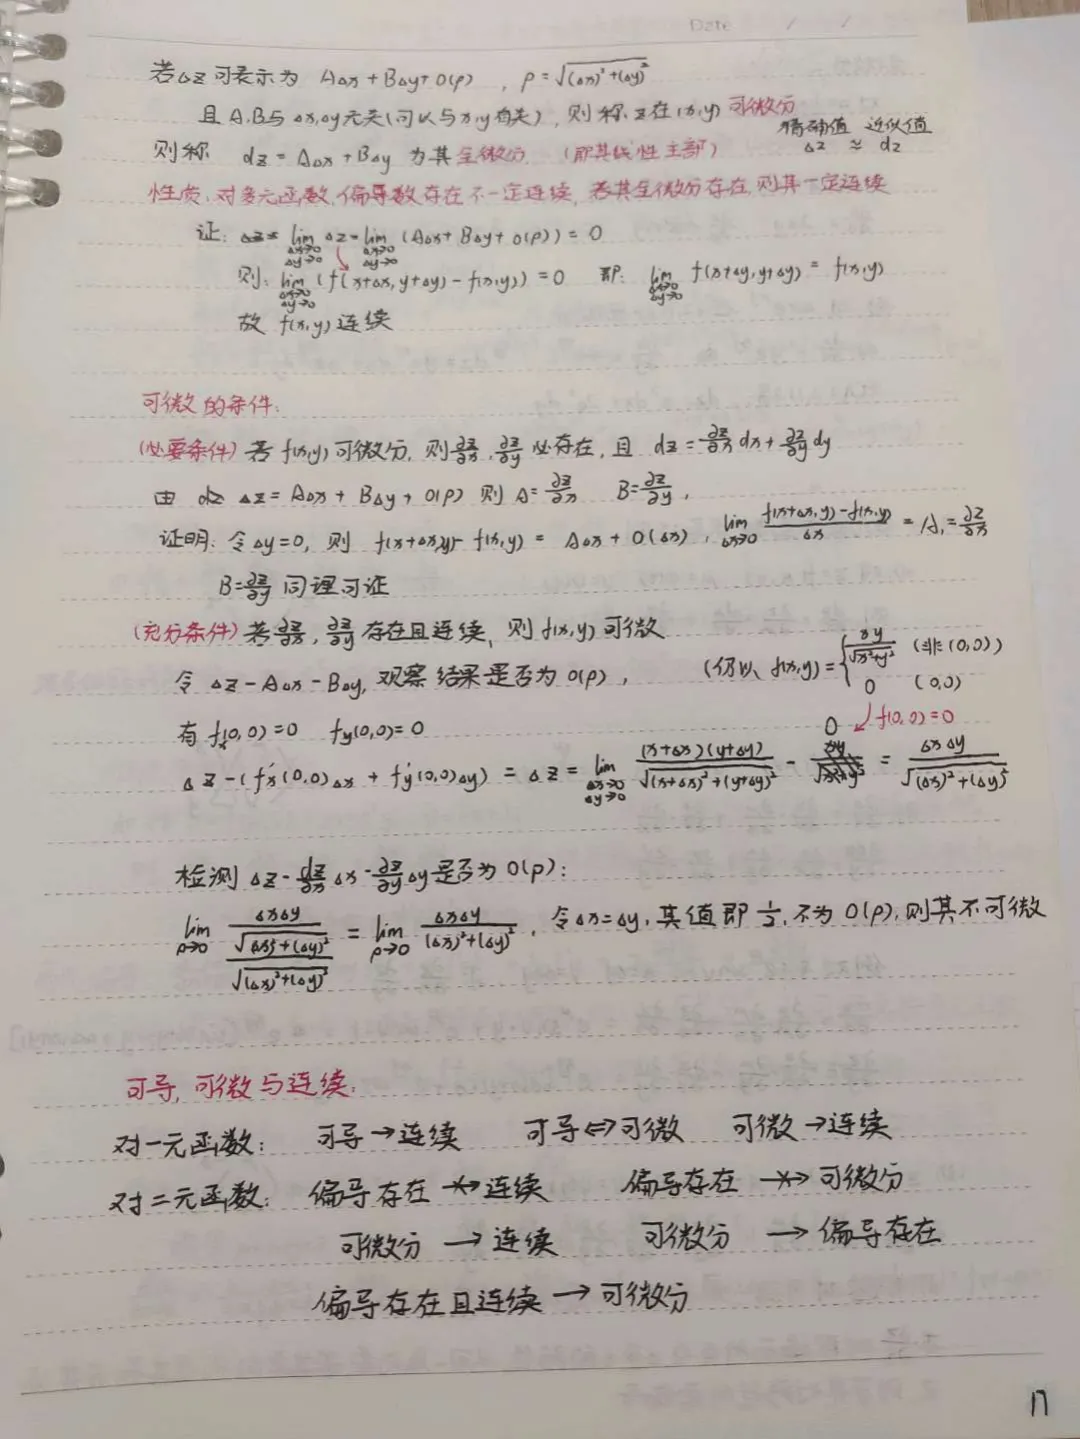 Date / /
若Δz可表示为 AΔx+BΔy+o(ρ) , ρ=√((Δx)²+(Δy)²)
且A.B与Δx,Δy无关(可以与x,y有关), 则称z在(x,y)可微分
精确值 近似值
则称 dz=AΔx+BΔy 为其全微分. (即其线性主部) Δz ≈ dz
性质:对多元函数,偏导数存在不一定连续,若其全微分存在,则其一定连续
证: lim(Δx→0 Δy→0) Δz = lim(Δx→0 Δy→0) (AΔx+BΔy+o(ρ))=0
则: lim(Δx→0 Δy→0) (f(x+Δx,y+Δy)-f(x,y))=0 即: lim(Δx→0 Δy→0) f(x+Δy,y+Δy)=f(x,y)
故 f(x,y)连续
可微的条件:
(必要条件)若f(x,y)可微分,则∂z/∂x,∂z/∂y必存在,且 dz=∂z/∂x dx+∂z/∂y dy
由 Δz=AΔx+BΔy+o(ρ) 则A=∂z/∂x B=∂z/∂y,
证明:令Δy=0, 则 f(x+Δx,y)-f(x,y)=AΔx+o(Δx), lim(Δx→0) (f(x+Δx,y)-f(x,y))/Δx = A,=∂z/∂x
B=∂z/∂y 同理可证
(充分条件)若∂z/∂x,∂z/∂y存在且连续,则f(x,y)可微
令 Δz-AΔx-BΔy,观察结果是否为o(ρ), (仍以 f(x,y)={ xy/√(x²+y²) (非(0,0))
0 (0,0)
有fx(0,0)=0 fy(0,0)=0 0 f(0,0)=0
Δz-(f'x(0,0)Δx+f'y(0,0)Δy)=Δz= lim(Δx→0 Δy→0) (x+Δx)(y+Δy)/√((x+Δx)²+(y+Δy)²) - xy/√(x²+y²) = ΔxΔy/√((Δx)²+(Δy)²)
检测Δz-∂z/∂x Δx-∂z/∂y Δy是否为o(ρ):
lim(ρ→0) (ΔxΔy/√((Δx)²+(Δy)²))/√((Δx)²+(Δy)²) = lim(ρ→0) ΔxΔy/((Δx)²+(Δy)²), 令Δx=Δy,其值即1/2,不为o(ρ),则其不可微
可导,可微与连续:
对一元函数: 可导→连续 可导⇔可微 可微→连续
对二元函数: 偏导存在 -×→ 连续 偏导存在 -×→ 可微分
可微分 → 连续 可微分 → 偏导存在
偏导存在且连续 → 可微分
17